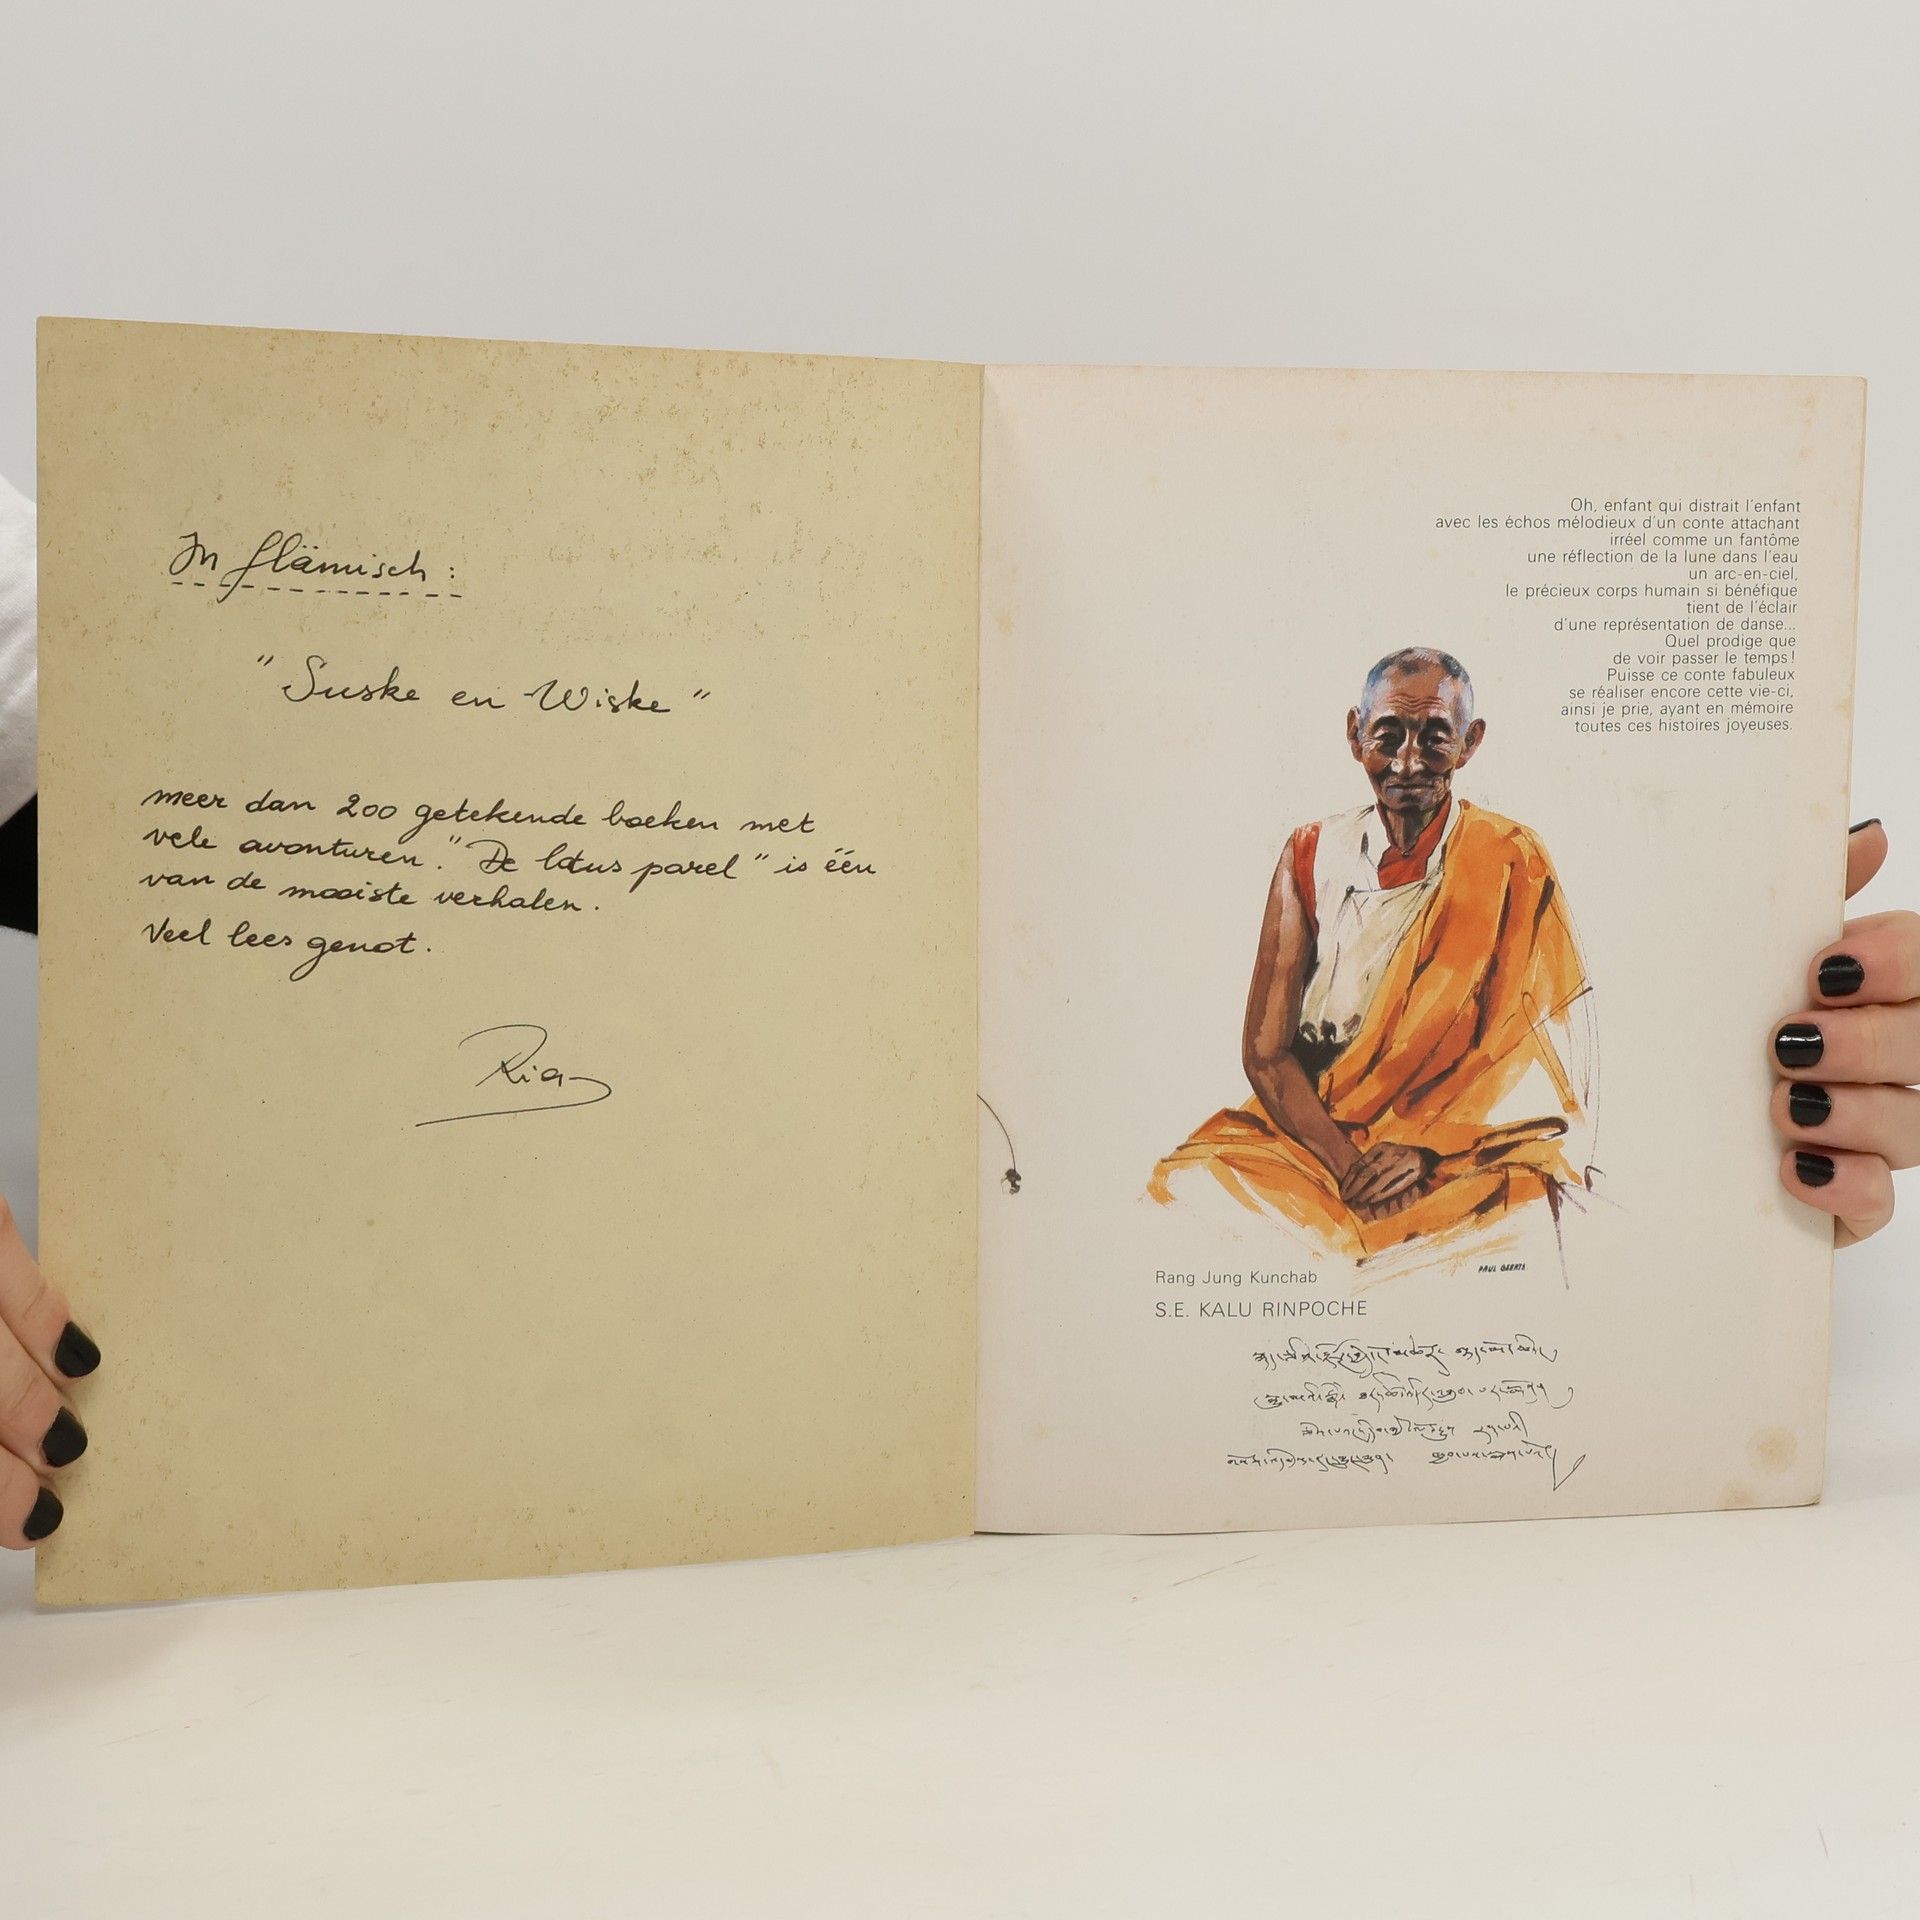 In flämisch :
"Suske en Wiske"
meer dan 200 getekende boeken met
vele avonturen. "De lotus parel" is één
van de mooiste verhalen.
Veel lees genot.
Ria
Oh, enfant qui distrait l'enfant
avec les échos mélodieux d'un conte attachant
irréel comme un fantôme
une réflection de la lune dans l'eau
un arc-en-ciel,
le précieux corps humain si bénéfique
tient de l'éclair
d'une représentation de danse...
Quel prodige que
de voir passer le temps!
Puisse ce conte fabuleux
se réaliser encore cette vie-ci,
ainsi je prie, ayant en mémoire
toutes ces histoires joyeuses.
PAUL GEERTS
Rang Jung Kunchab
S.E. KALU RINPOCHE